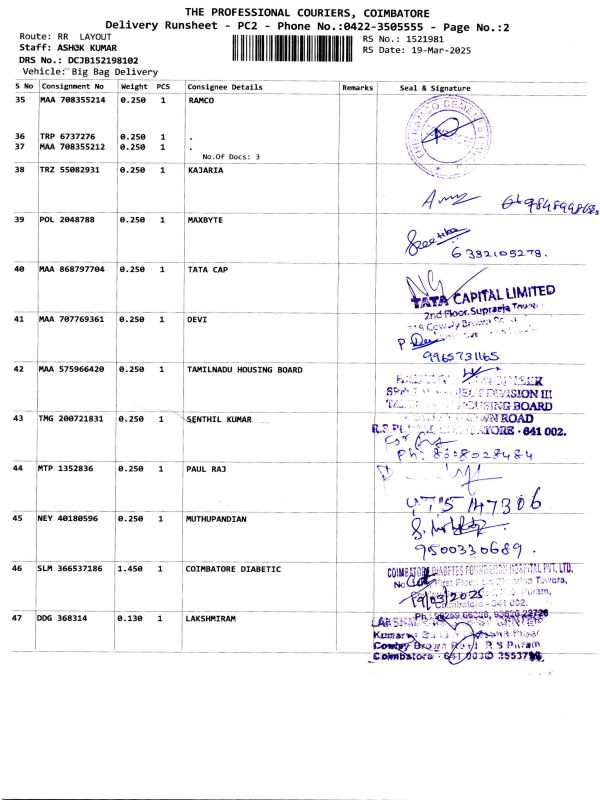 THE PROFESSIONAL COURIERS, COIMBATORE
Delivery Runsheet - PC2 - Phone No.:0422-3505555 - Page No.:2
Route: RR LAYOUT
RS No.: 1521981
Staff: ASHOK KUMAR
RS Date: 19-Mar-2025
DRS No.: DCJB152198102
Vehicle: Big Bag Delivery
S No Consignment No Weight PCS Consignee Details Remarks Seal & Signature
35 MAA 708355214 0.250 1 RAMCO
36 TRP 6737276 0.250 1 .
37 MAA 708355212 0.250 1 .
No.Of Docs: 3
38 TRZ 55082931 0.250 1 KAJARIA
39 POL 2048788 0.250 1 MAXBYTE
6382105278.
40 MAA 868797704 0.250 1 TATA CAP
TATA CAPITAL LIMITED
2nd Floor, Supraja Tower
Cowly Brown
41 MAA 707769361 0.250 1 DEVI
9965731165
42 MAA 575966420 0.250 1 TAMILNADU HOUSING BOARD
DIVISION III
HOUSING BOARD
43 TMG 200721831 0.250 1 SENTHIL KUMAR
ROAD
- 641 002.
44 MTP 1352836 0.250 1 PAUL RAJ
45 NEY 40180596 0.250 1 MUTHUPANDIAN
9500330689.
46 SLM 366537186 1.450 1 COIMBATORE DIABETIC
COIMBATORE DIABETES FOUNDATION HOSPITAL PVT. LTD.
First Floor, Towers,
19/03/2025 Puram,
Coimbatore - 641 002.
47 DDG 368314 0.130 1 LAKSHMIRAM
Cowley Brown Road R S Puram
Coimbatore - 641